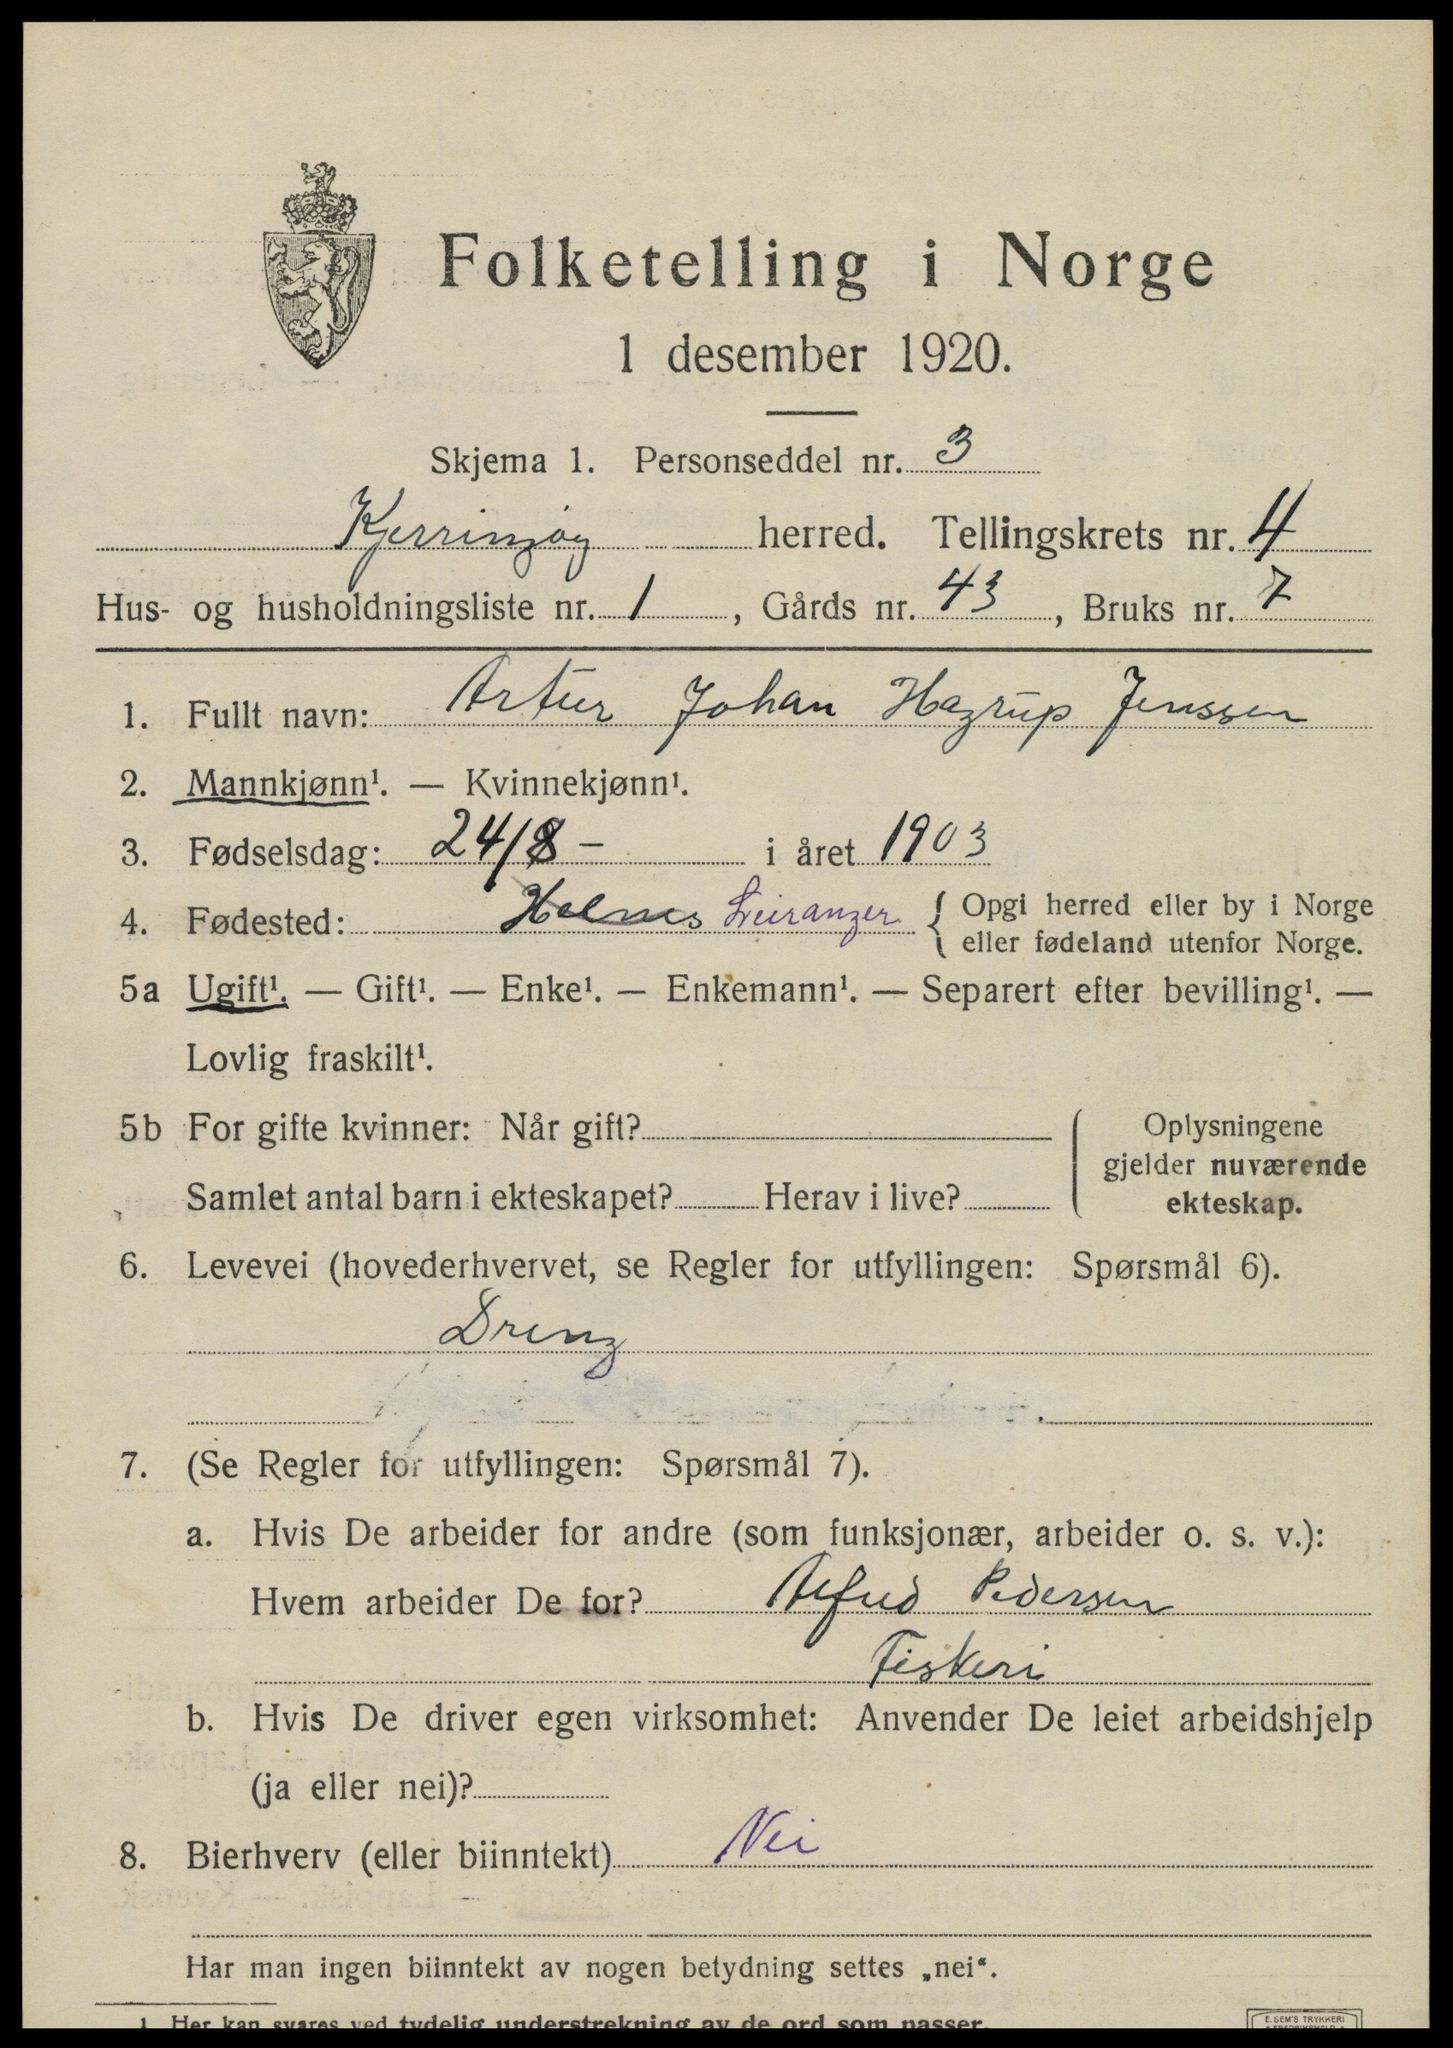 Folketelling i Norge
1 desember 1920.
Skjema 1. Personseddel nr. 3
Kjerringøy herred. Tellingskrets nr. 4
Hus- og husholdningsliste nr. 1, Gårds nr. 43, Bruks nr. 7
1. Fullt navn: Artur Johan Hagrup Jenssen
2. Mannkjønn¹. — Kvinnekjønn¹.
3. Fødselsdag: 24/8 – i året 1903
4. Fødested: Holmes Leiranger { Opgi herred eller by i Norge
eller fødeland utenfor Norge.
5a Ugift¹. — Gift¹. — Enke¹. — Enkemann¹. — Separert efter bevilling¹. —
Lovlig fraskilt¹.
5b For gifte kvinner: Når gift? Oplysningene
gjelder nuværende
Samlet antal barn i ekteskapet? Herav i live? ekteskap.
6. Levevei (hovederhvervet, se Regler for utfyllingen: Spørsmål 6).
Dreng
7. (Se Regler for utfyllingen: Spørsmål 7).
a. Hvis De arbeider for andre (som funksjonær, arbeider o. s. v.):
Hvem arbeider De for? Alfred Pedersen
Fiskeri
b. Hvis De driver egen virksomhet: Anvender De leiet arbeidshjelp
(ja eller nei)?
8. Bierhverv (eller biinntekt) Nei
Har man ingen biinntekt av nogen betydning settes „nei“.
1 Her kan svares ved tydelig understrekning av de ord som passer.
E. SEM'S TRYKKERI
FREDRIKSHALD